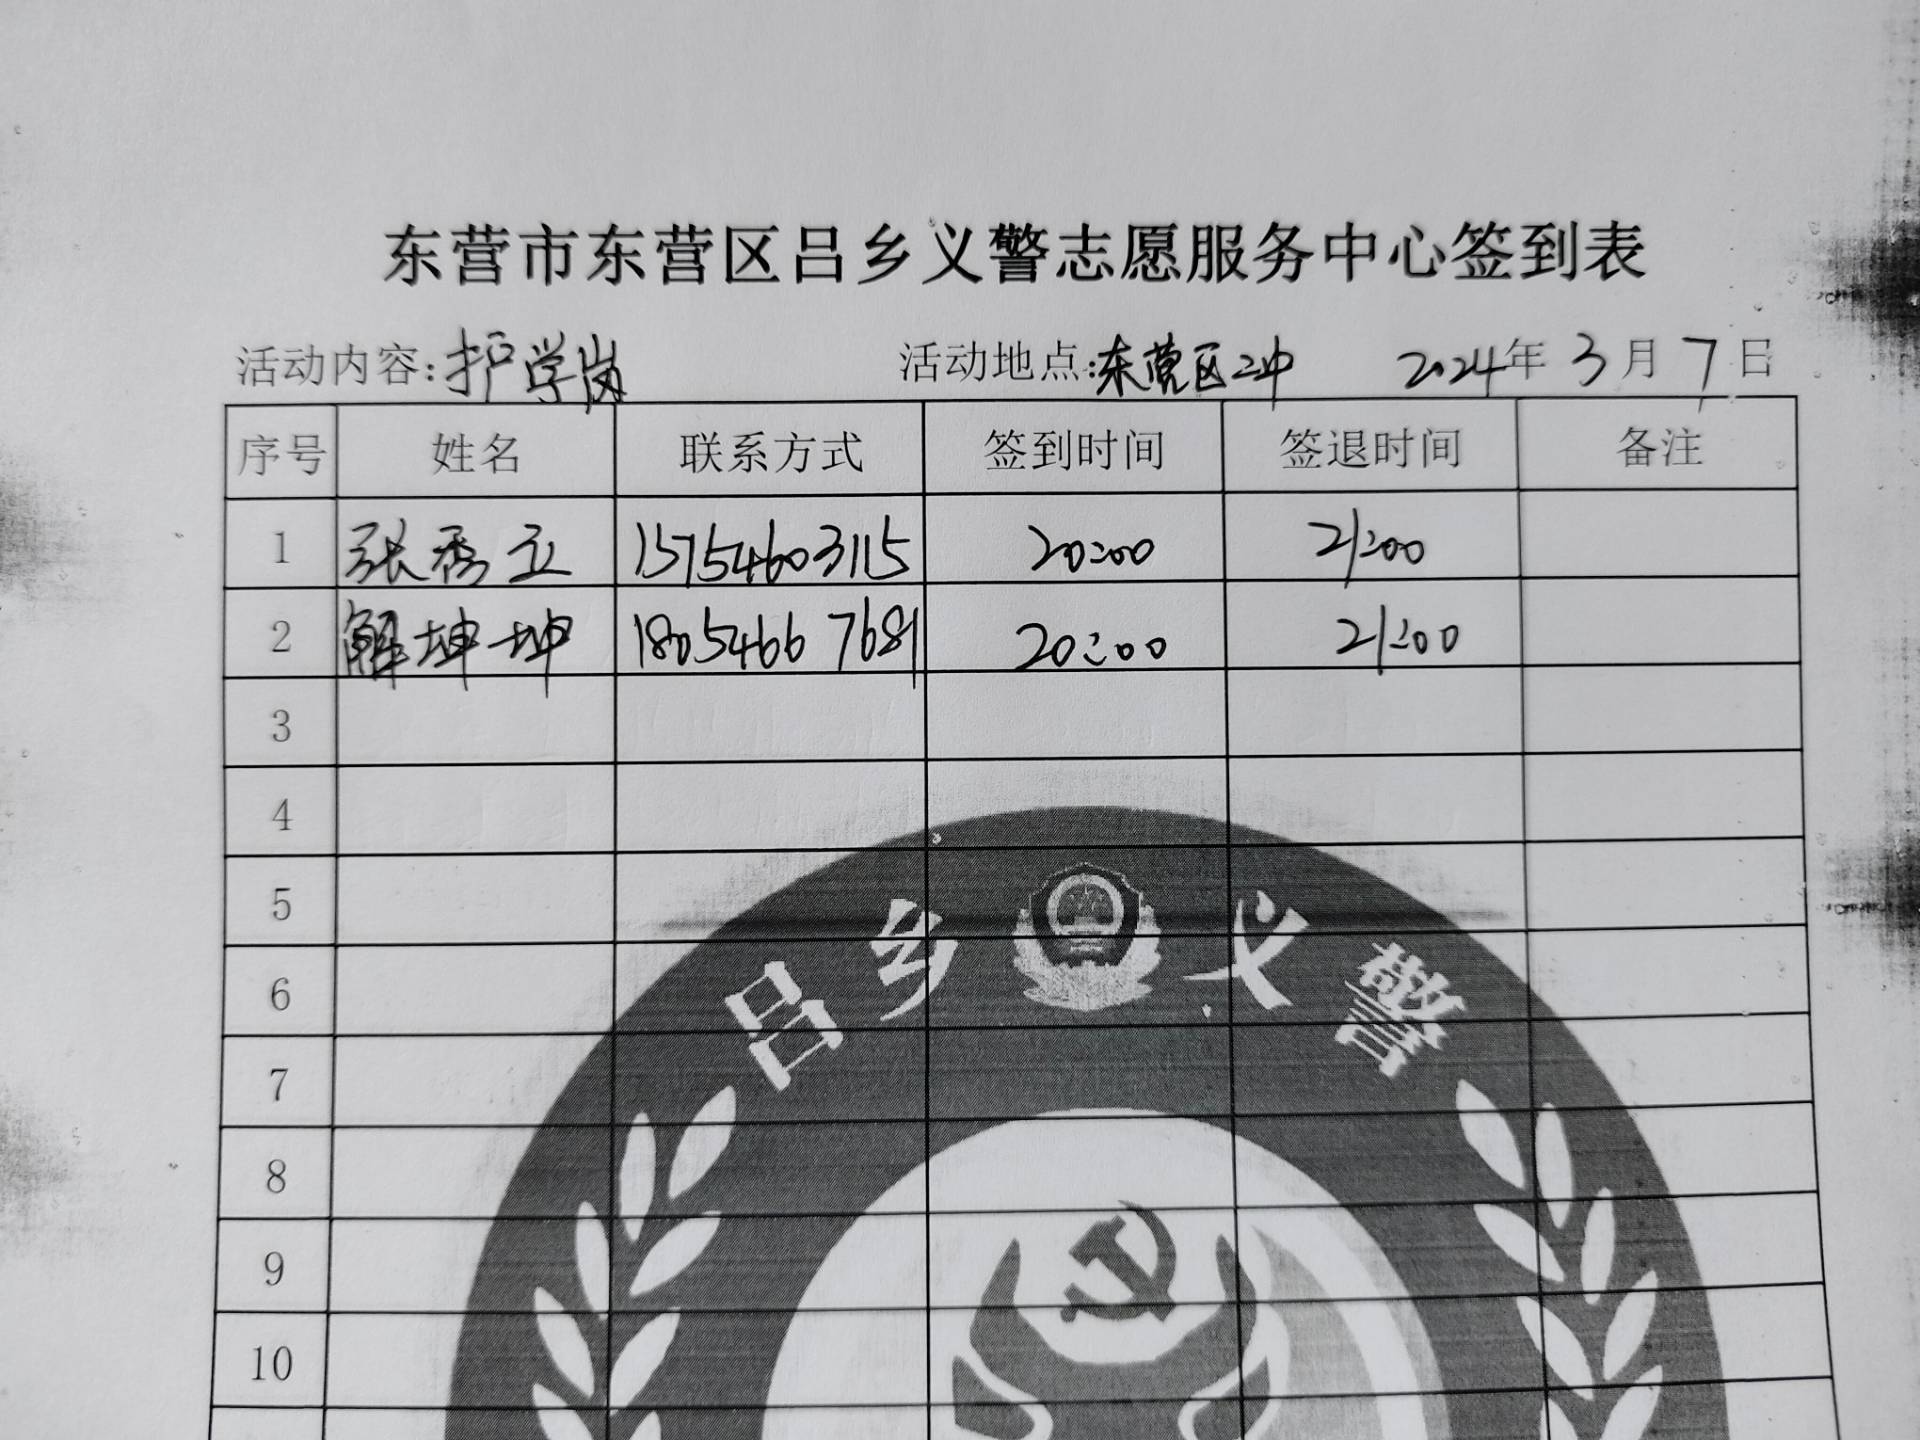 东营市东营区吕乡义警志愿服务中心签到表
活动内容:护学岗 活动地点:东营区二中 2024年3月7日
序号 姓名 联系方式 签到时间 签退时间 备注
1 张秀立 15754603115 20:00 21:00
2 解坤坤 18054667681 20:00 21:00
3
4
5
6
7
8
9
10
吕乡义警